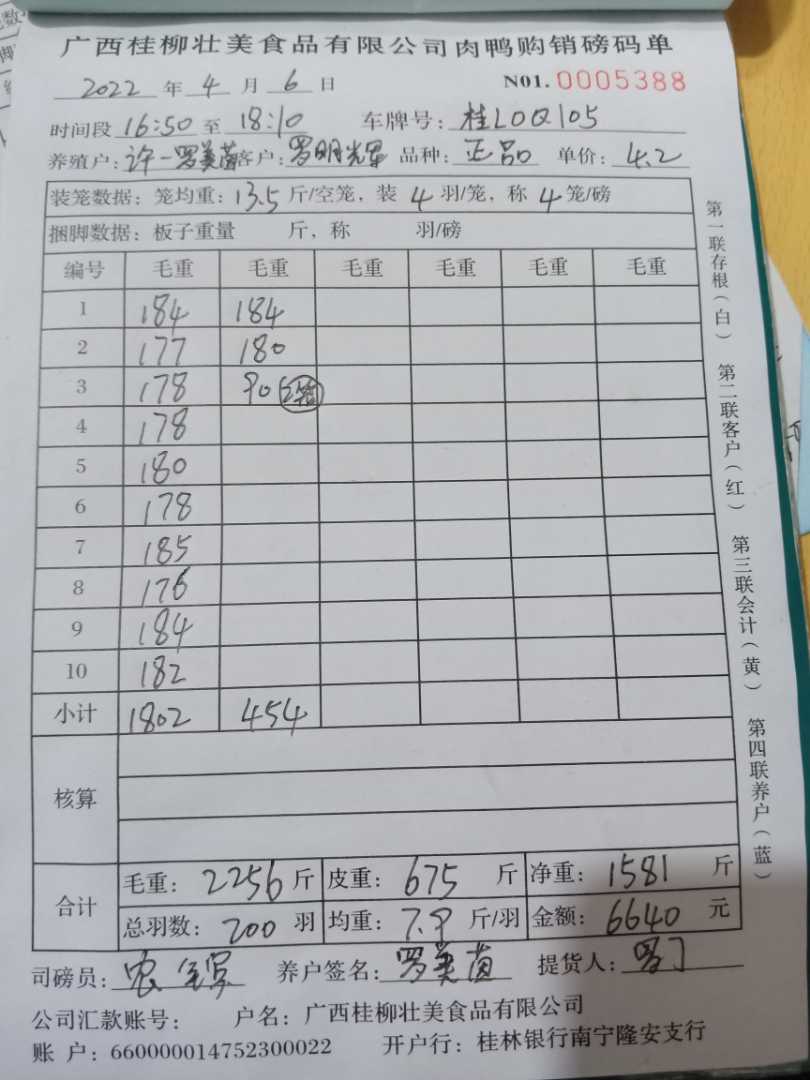 广西桂柳壮美食品有限公司肉鸭购销磅码单
2022 年 4 月 6 日 N01. 0005388
时间段 16:50 至 18:10 车牌号: 桂L0Q105
养殖户: 许一罗美茵 客户: 罗明光军 品种: 正品 单价: 4.2
装笼数据: 笼均重: 13.5 斤/空笼, 装 4 羽/笼, 称 4 笼/磅
捆脚数据: 板子重量 斤, 称 羽/磅
编号 毛重 毛重 毛重 毛重 毛重 毛重
1 184 184
2 177 180
3 178 90 2笼
4 178
5 180
6 178
7 185
8 176
9 184
10 182
小计 1802 454
核算
合计 毛重: 2256 斤 皮重: 675 斤 净重: 1581 斤
总羽数: 200 羽 均重: 7.9 斤/羽 金额: 6640 元
司磅员: 养户签名: 罗美茵 提货人:
公司汇款账号: 户名: 广西桂柳壮美食品有限公司
账 户: 660000014752300022 开户行: 桂林银行南宁隆安支行
第一联存根(白) 第二联客户(红) 第三联会计(黄) 第四联养户(蓝)